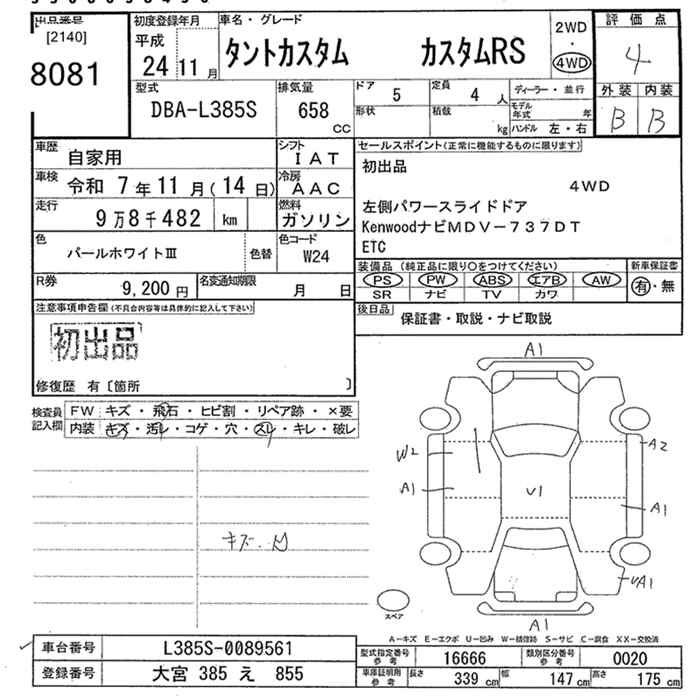 出品番号
[2140]
8081
初度登録年月
平成
24 11 月
車名・グレード
タントカスタム カスタムRS
2WD
・
4WD
評価点
4
外装 内装
B B
型式
DBA-L385S
排気量
658
CC
ドア 5
定員 4 人
形状
積載 kg
ディーラー・並行
モデル年式 年
ハンドル 左・右
車歴 自家用
シフト IAT
車検 令和 7年11月(14日)
冷房 AAC
走行 9万8千482 km
燃料 ガソリン
色 パールホワイトⅢ
色替
色コード W24
R券 9,200円
名変通知期限 月 日
セールスポイント(正常に機能するものに限ります)
初出品
4WD
左側パワースライドドア
KenwoodナビMDV-737DT
ETC
装備品 (純正品に限り○をつけてください)
新車保証書
PS PW ABS エアB AW
SR ナビ TV カワ
有・無
後日品 保証書・取説・ナビ取説
注意事項申告欄(不具合内容等は具体的に記入して下さい)
初出品
修復歴 有〔箇所 〕
検査員記入欄
FW キズ・飛石・ヒビ割・リペア跡・×要
内装 キズ・汚レ・コゲ・穴・スレ・キレ・破レ
A1
W2
A2
A1
U1
A1
UA1
A1
スペア
A-キズ E-エクボ U-凹み W-補修跡 S-サビ C-腐食 XX-交換済
車台番号 L385S-0089561
登録番号 大宮 385 え 855
型式指定番号 参考 16666
類別区分番号 参考 0020
車庫証明用 参考
長さ 339 cm
幅 147 cm
高さ 175 cm